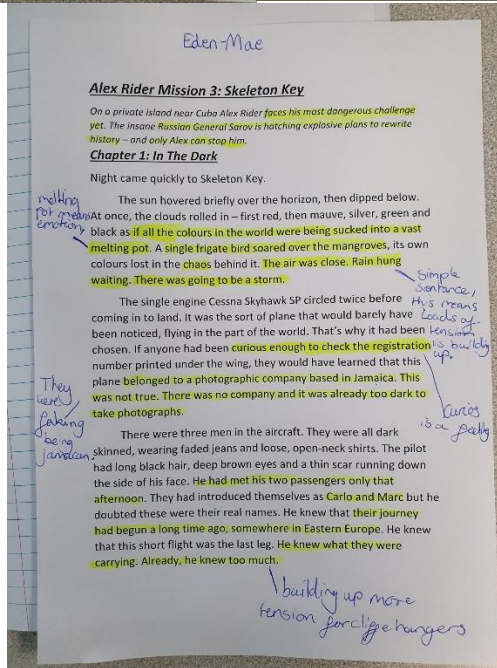 Eden-Mae
Alex Rider Mission 3: Skeleton Key
On a private island near Cuba Alex Rider faces his most dangerous challenge
yet. The insane Russian General Sarov is hatching explosive plans to rewrite
history – and only Alex can stop him.
Chapter 1: In The Dark
Night came quickly to Skeleton Key.
The sun hovered briefly over the horizon, then dipped below.
At once, the clouds rolled in – first red, then mauve, silver, green and
black as if all the colours in the world were being sucked into a vast
melting pot. A single frigate bird soared over the mangroves, its own
colours lost in the chaos behind it. The air was close. Rain hung
waiting. There was going to be a storm.
melting
pot means
emotion
Simple
sentance,
this means
Loads of
tension
is building
up.
The single engine Cessna Skyhawk SP circled twice before
coming in to land. It was the sort of plane that would barely have
been noticed, flying in the part of the world. That's why it had been
chosen. If anyone had been curious enough to check the registration
number printed under the wing, they would have learned that this
plane belonged to a photographic company based in Jamaica. This
was not true. There was no company and it was already too dark to
take photographs.
They
were
faking
being
jamaican.
curios
is a feeling
There were three men in the aircraft. They were all dark
skinned, wearing faded jeans and loose, open-neck shirts. The pilot
had long black hair, deep brown eyes and a thin scar running down
the side of his face. He had met his two passengers only that
afternoon. They had introduced themselves as Carlo and Marc but he
doubted these were their real names. He knew that their journey
had begun a long time ago, somewhere in Eastern Europe. He knew
that this short flight was the last leg. He knew what they were
carrying. Already, he knew too much.
building up more
tension for cliffe hangers